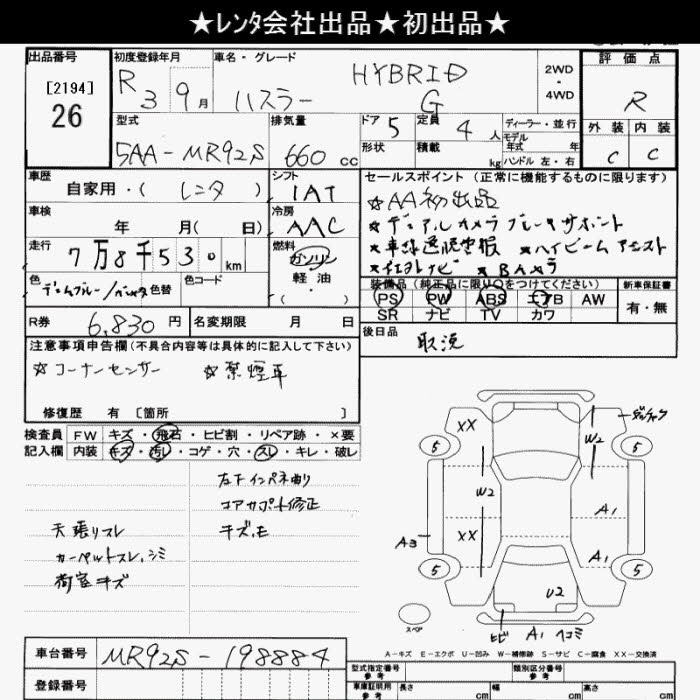 ★ﾚﾝﾀ会社出品★初出品★
出品番号 初度登録年月 車名・グレード 評価点
[2194] R 3 9月 ハスラー HYBRID G 2WD・4WD R
26
型式 排気量 ドア 5 定員 4人 ディーラー・並行 外装 内装
モデル年式 年
5AA-MR92S 660 cc 形状 積載 kg ハンドル 左・右 C C
車歴 シフト セールスポイント(正常に機能するものに限ります)
自家用・( レンタ ) IAT ☆AA初出品
車検 冷房 ☆デュアルカメラブレーキサポート
年 月( 日) AAC
走行 燃料
7万8千530km ガソリン ☆ハイビームアシスト
軽油・( )
色 色替 色コード ☆BAメラ
装備品(純正品に限り○をつけてください) 新車保証書
PS PW ABS エアB AW 有・無
SR ナビ TV カワ
R券 6,830円 名変期限 月 日 後日品 取説
注意事項申告欄(不具合内容等は具体的に記入して下さい)
☆コーナーセンサー ☆禁煙車
修復歴 有〔箇所 〕
検査員 FW キズ・飛石・ヒビ割・リペア跡・×要
記入欄 内装 キズ・汚レ・コゲ・穴・スレ・キレ・破レ
左下インパネ曲り
コアサポート修正
天張りスレ キズ,E
カーペットスレ,シミ
荷室キズ
XX W2
5 5
W2
A3 XX A1
A1
5 5
U2
スペア ヒビ A1 ヘコミ
A-キズ E-エクボ U-凹み W-補修跡 S-サビ C-腐食 XX-交換済
車台番号 MR92S-198884 型式指定番号 参考 類別区分番号 参考
登録番号 車庫証明用 参考 長さ cm 幅 cm 高さ cm